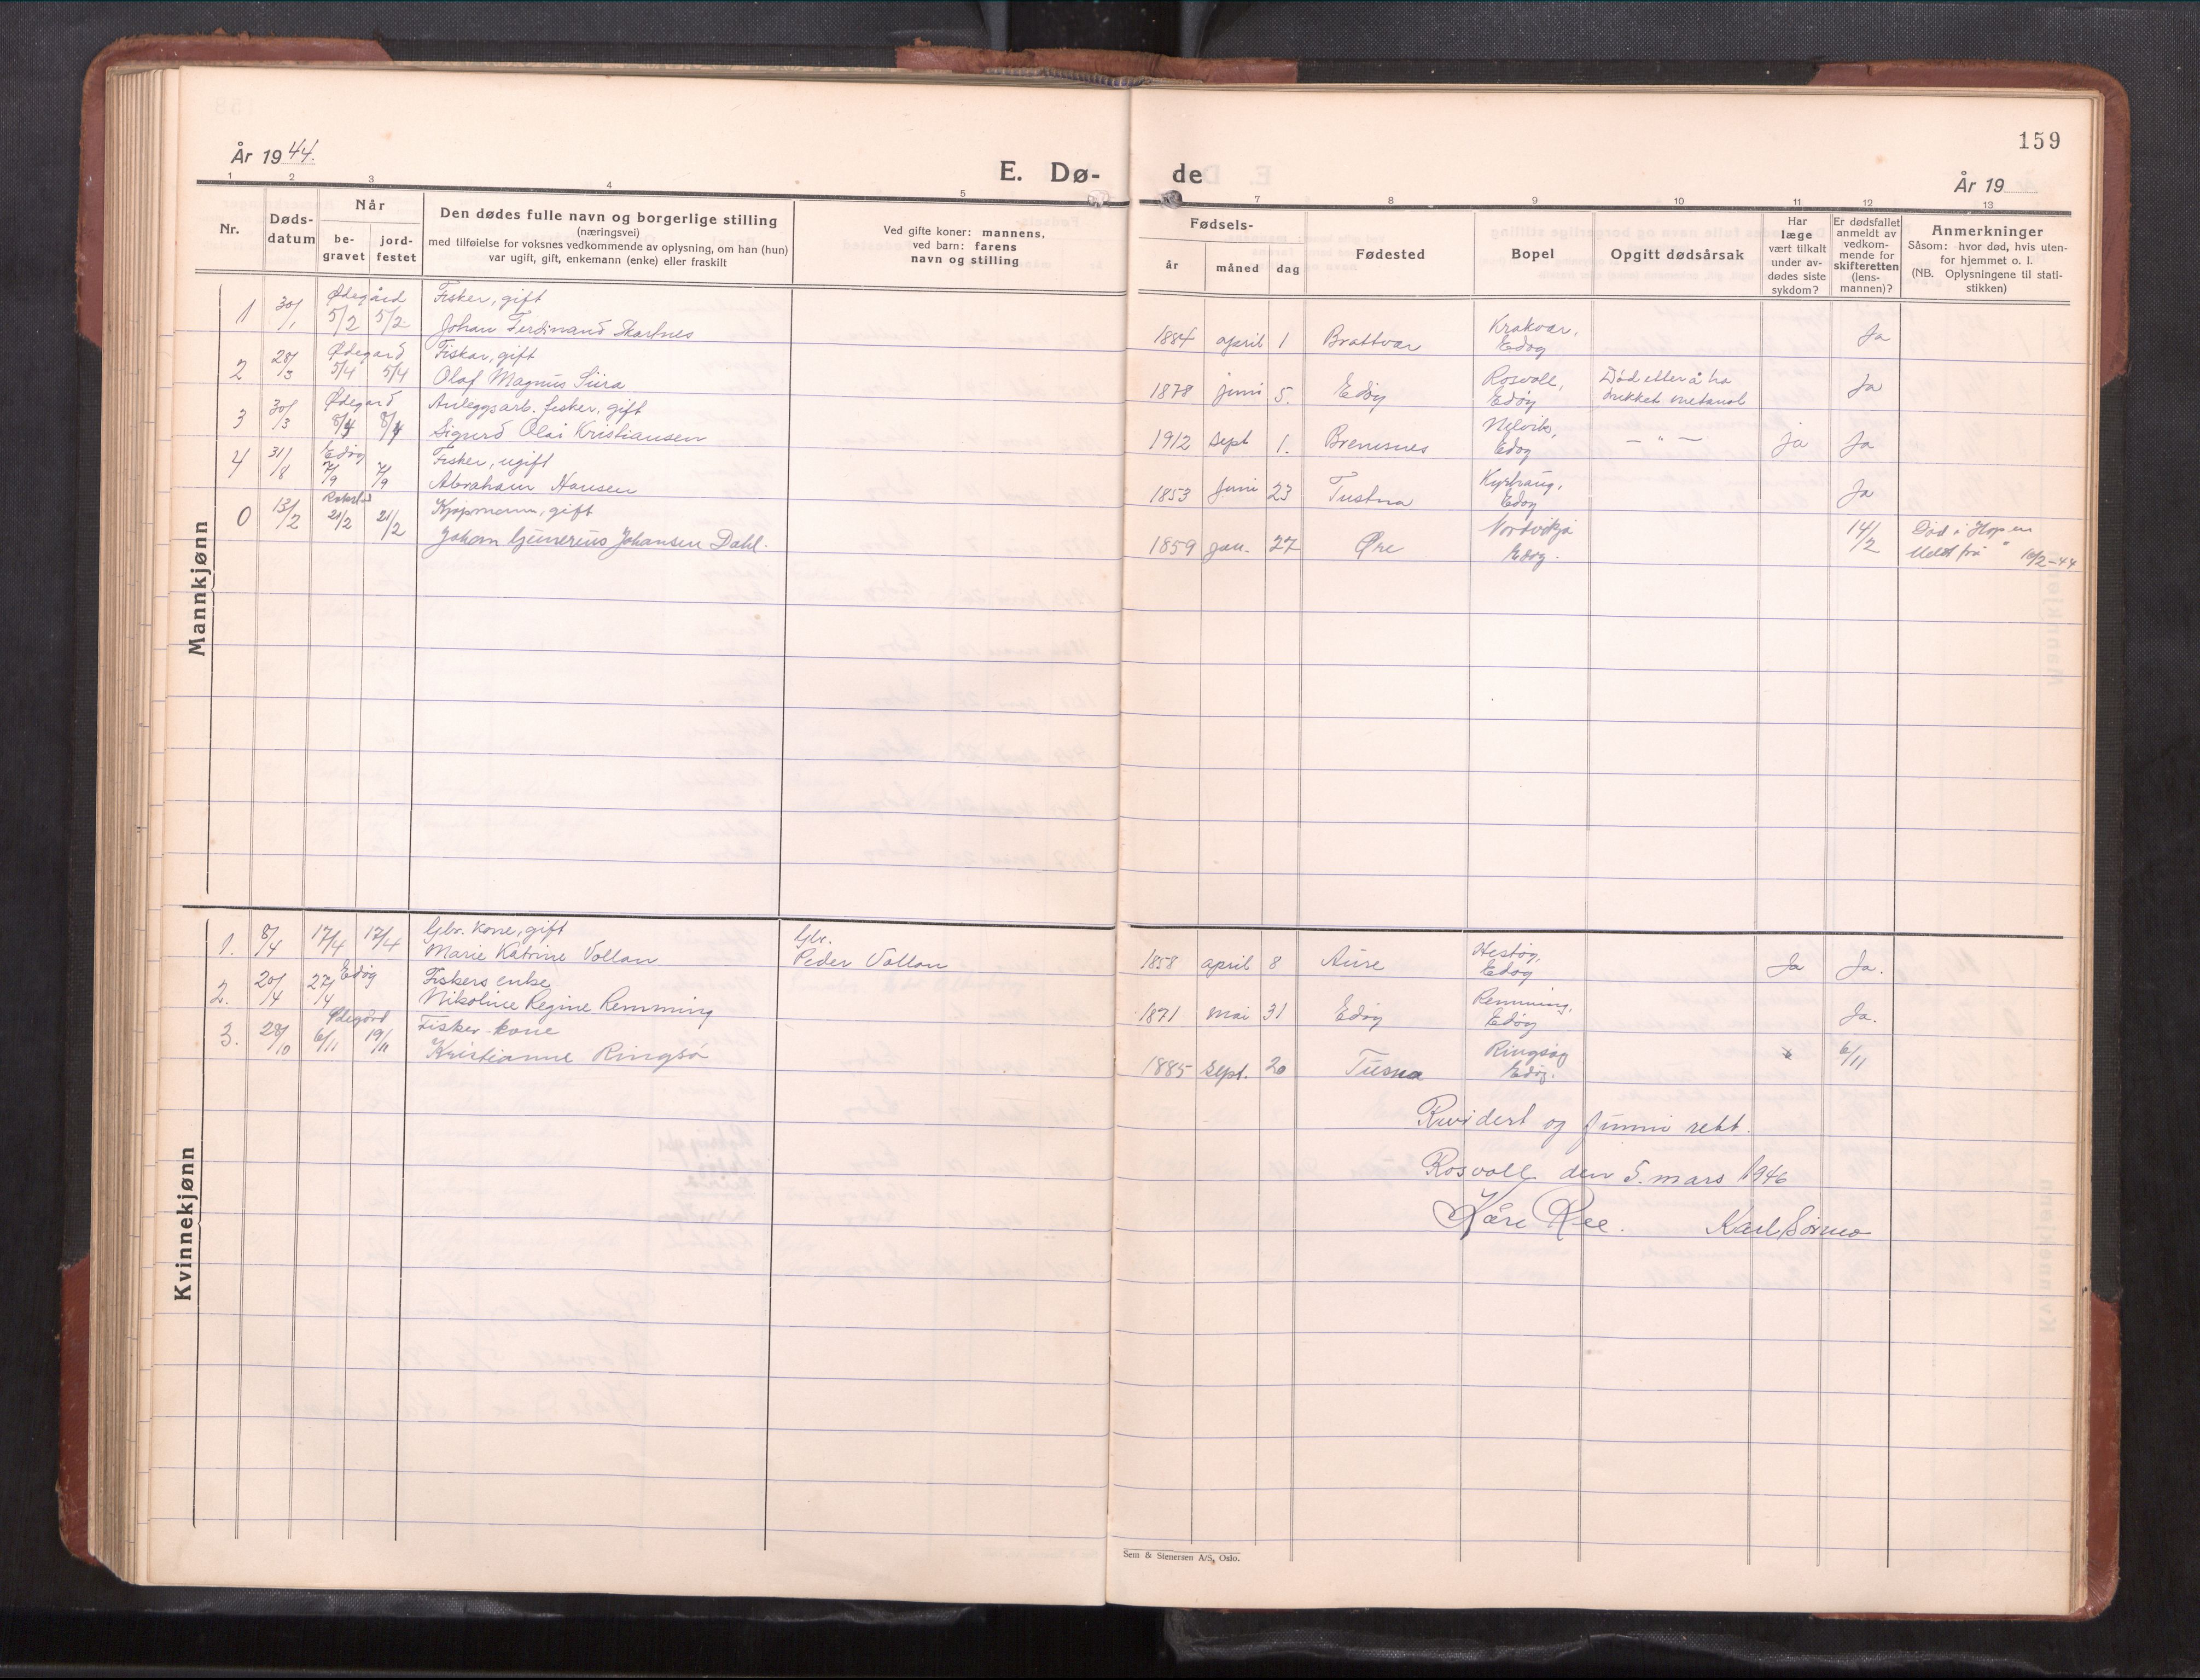 159
År 1944.
E. Dø-
de
År 19
1 2 3 4 5 7 8 9 10 11 12 13
Nr.
Døds-
datum
Når
be-
gravet
jord-
festet
Den dødes fulle navn og borgerlige stilling
(næringsvei)
med tilføielse for voksnes vedkommende av oplysning, om han (hun)
var ugift, gift, enkemann (enke) eller fraskilt
Ved gifte koner: mannens,
ved barn: farens
navn og stilling
Fødsels-
år måned dag
Fødested
Bopel
Opgitt dødsårsak
Har
læge
vært tilkalt
under av-
dødes siste
sykdom?
Er dødsfallet
anmeldt av
vedkom-
mende for
skifteretten
(lens-
mannen)?
Anmerkninger
Såsom: hvor død, hvis uten-
for hjemmet o. l.
(NB. Oplysningene til stati-
stikken)
Mannkjønn
Ødegård Fisker, gift Krakvær,
1 30/1 5/2 5/2 Johan Ferdinand Skarnes 1884 april 1 Brattvær Edøy Ja
Ødegard Fiskar, gift Rosvoll, Død etter å ha
2 28/3 5/4 5/4 Olaf Magnus 1878 juni 5. Edøy Edøy drukket metanol Ja
Ødegard Anleggsarb. fisker, gift Nelvik,
3 30/3 8/4 8/4 Sigurd Olai Kristiansen 1912 sept 1. Bremsnes Edøy — " — ja Ja
Edøy Fisker, ugift Kyrhaug,
4 31/8 7/9 7/9 Abraham Hansen 1853 juni 23 Tustna Edøy Ja
Kjøpmann, gift Nordvika Død i Hopen
0 13/2 21/2 21/2 Johan Gunerius Johansen Dahl. 1859 jan. 27 Øre Edøy. 14/2 Meldt frå " 16/2-44
Kvinnekjønn
Gbr. kone, gift Gbr. Hestøy,
1. 8/4 17/4 17/4 Marie Katrine Vollan Peder Vollan 1858 april 8 Aure Edøy Ja Ja.
Edøy Fiskers enke Remming,
2. 20/4 27/4 Nikoline Regine Remming 1871 mai 31 Edøy Edøy Ja.
Ødegård Fisker-kone Ringsøy
3. 28/10 6/11 19/11 Kristianne Ringsø 1885 sept. 20 Tusna Edøy. 6/11
Revidert og funni rett.
Rosvoll den 5. mars 1946
Kåre Ree. Karl Sørmo
Sem & Stenersen A/S, Oslo.